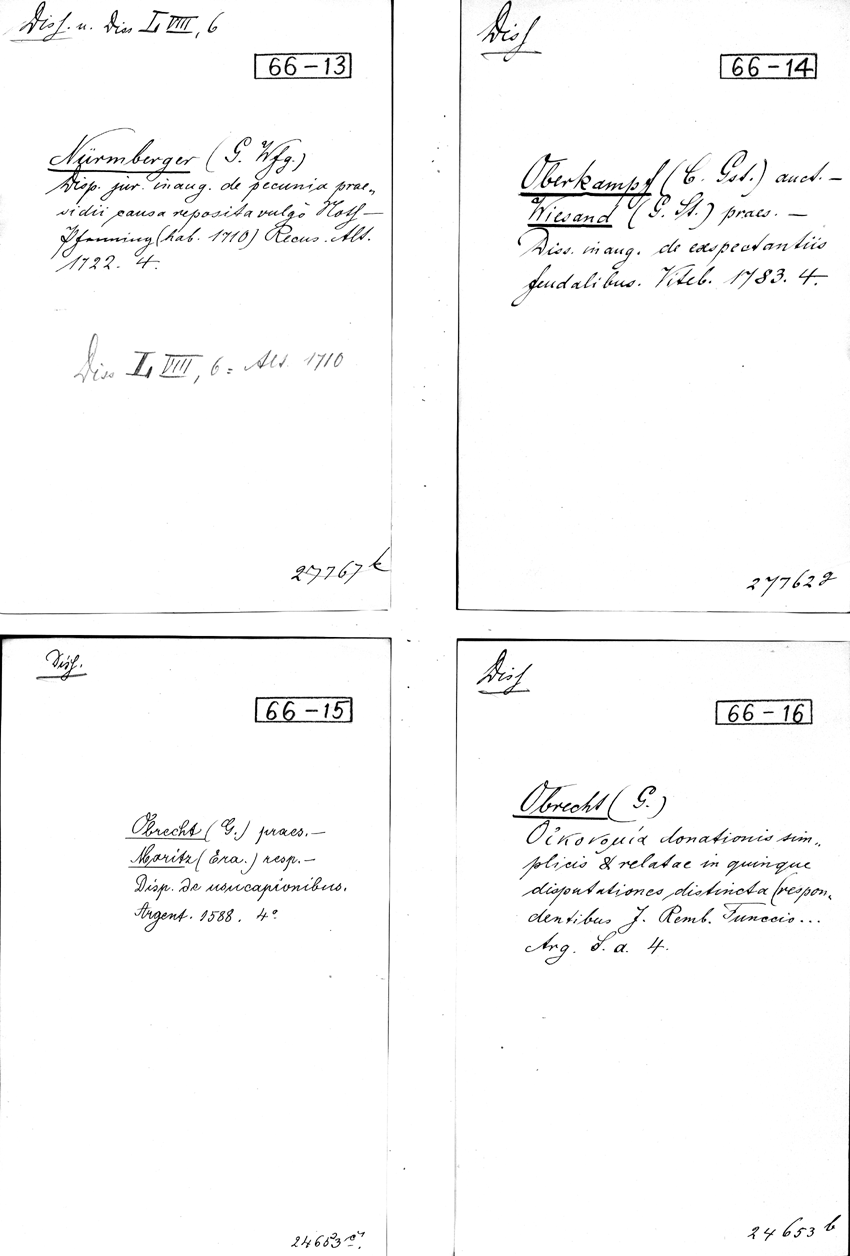 Diss. u. Diss L VIII, 6
66-13
Nürmberger (G. Wfg.)
Disp. jur. inaug. de pecunia prae-
sidii causa reposita vulgò Noth-
Pfenning (hab. 1710) Recus. Alt.
1722. 4.
Diss L VIII, 6 = Alt. 1710
27767 k
Diss
66-14
Oberkampf (C. Gst.) auct. -
Wiesand (G. St.) praes. -
Diss. inaug. de exspectantiis
feudalibus. Viteb. 1783. 4.
27762 g
Diss.
66-15
Obrecht (G.) praes. -
Moritz (Era.) resp. -
Disp. de usucapionibus.
Argent. 1588. 4°
24653
Diss
66-16
Obrecht (G.)
Οἰκονομία donationis sim-
plicis & relatae in quinque
disputationes distincta (respon-
dentibus J. Remb. Funccio...
Arg. S. a. 4.
24653 b